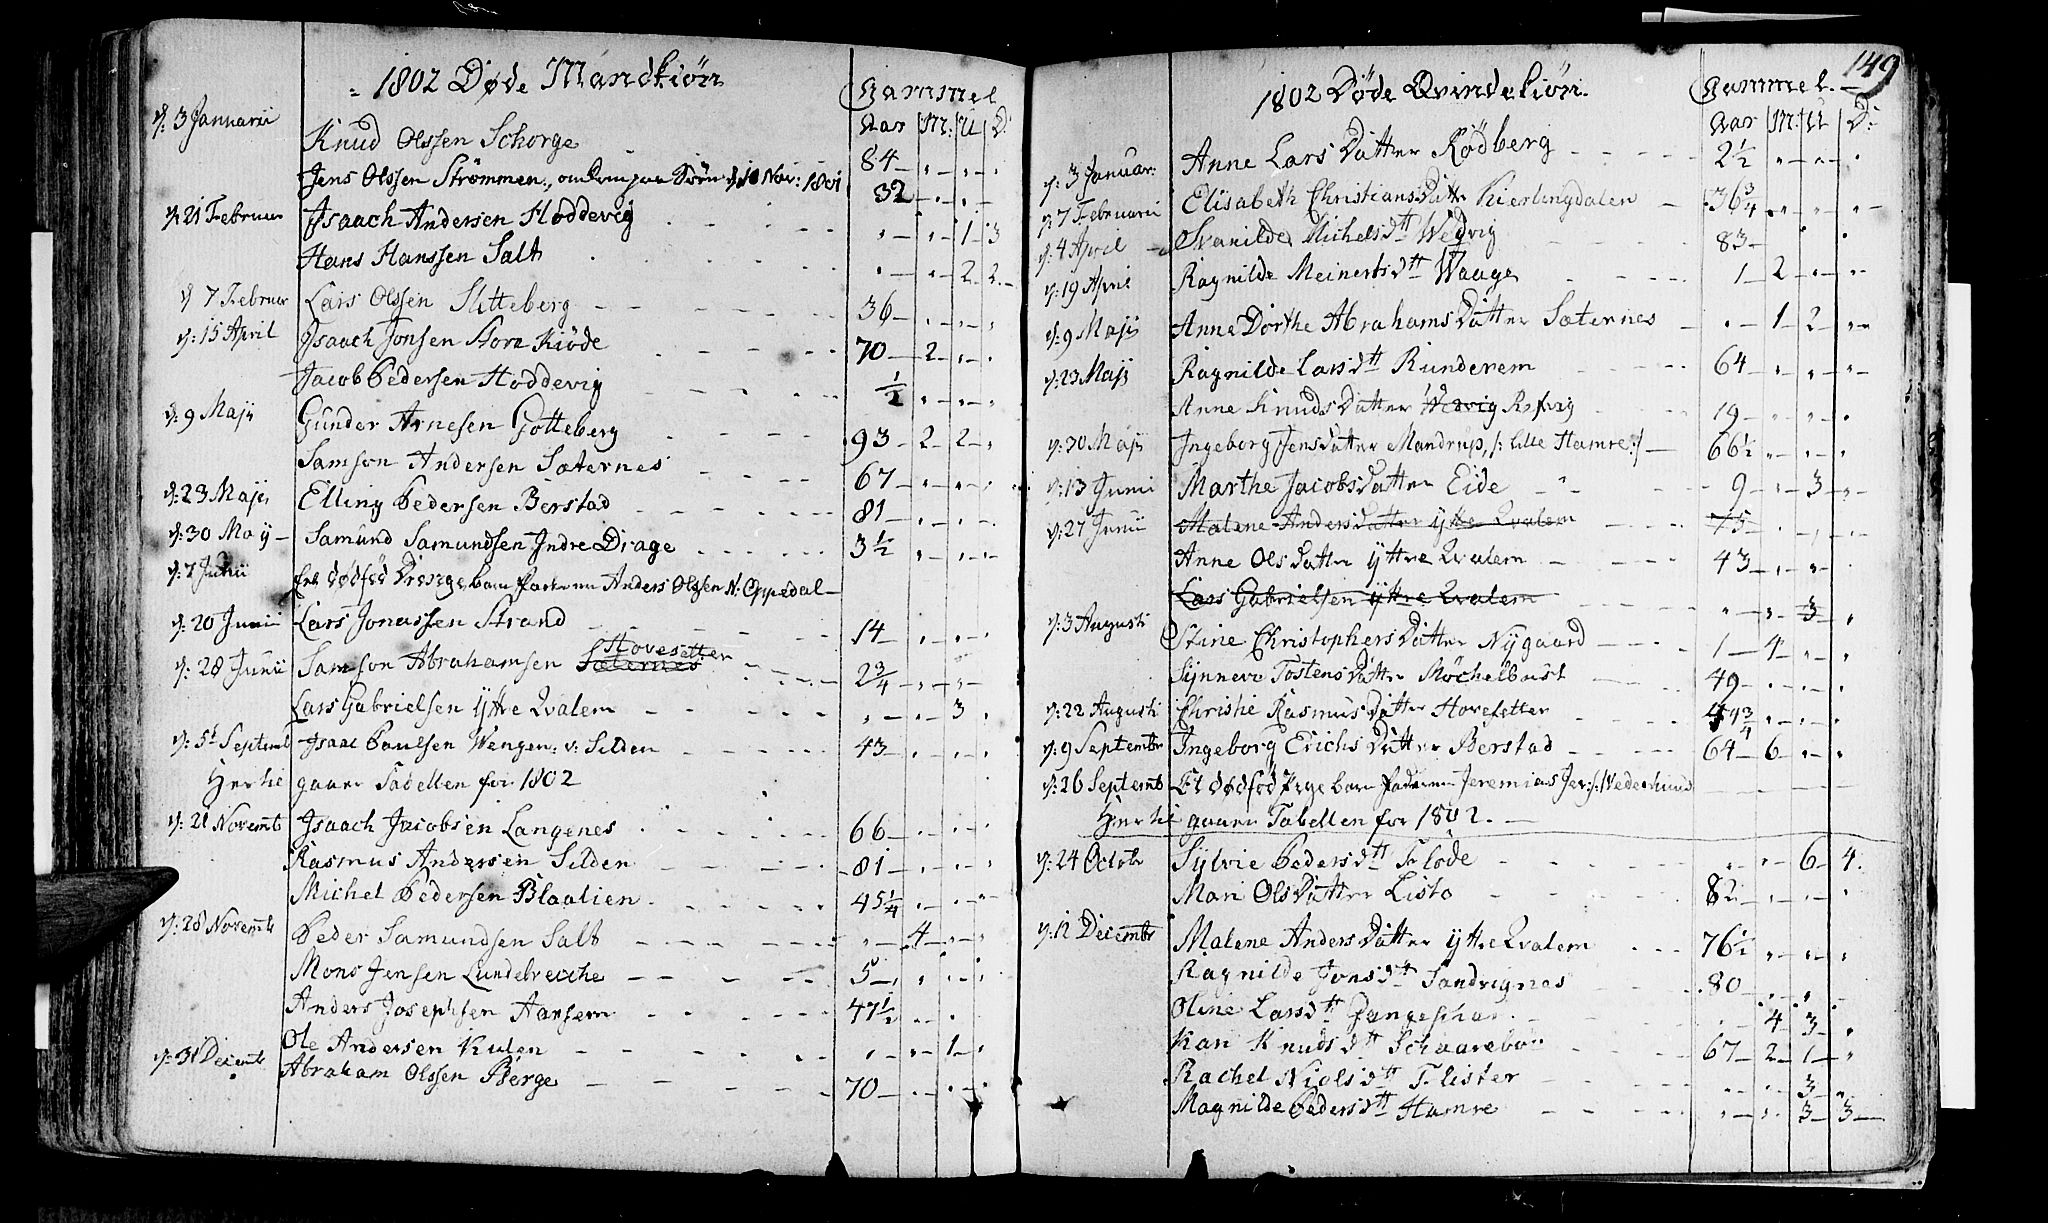 1802 Døde Mandkiøn
Gammel
Aar M: U D:
d: 3 Januarii Knud Olssen Schorge 84
Jens Olssen Strømmen, omkom paa Søen d. 10 Nov: 1801 32
d: 21 Februar Isaach Andersen Hoddevig 1 3
Hans Hanssen Salt 2 2
d 7 Februar Lars Olssen Slitteberg 36
d: 15 April Isaach Jonsen Store Kiøde 70 2
Jacob Pedersen Hoddevig ½
d: 9 Maji Gunder Arnesen Gotteberg 93 2 2
Samson Andersen Sæternes 67
d: 23 Maji Elling Pedersen Berstad 81
d: 30 Maij Samund Samundsen Indre Drage 3½
d: 7 Junii Et dødfød Drenge barn Faderen Anders Olssen N: Oppedal
d: 20 Junii Lars Jonassen Strand 14
Hovesetter
d: 28 Junii Samson Abrahamsen Sæternes 2¾
Lars Gabrielsen Yttre Qvalem 3
d: 5t Septemb Isaac Paulsen Wengen: v: Silden 43
Her he gaaer Tabellen for 1802
d: 21 Novemb Isaach Jacobsen Langenes 66
Rasmus Andersen Silden 81
Michel Pedersen Blaalien 45¼
d: 28 Novemb Peder Samundsen Salt 4
Mons Jensen Lundebrecche 5
Anders Josephsen Aarsem 47½
Ole Andersen Kulen 1
d: 31 Decemb Abraham Olssen Berge 70
149
1802 Døde Qvindekiøn.
Gammel
Aar M: U D:
d: 3 Januar: Anne Lars Datter Rødberg 2½
d: 7 Februarii Elisabeth Christians Datter Kierlingdalen 36¾
d: 4 April Svanilde Michelsdtt Wedvig 83
d: 19 April Ragnilde Meinertsdtt Waage 1 2
d: 9 Maji Anne Dorthe Abrahams Datter Sæternes 1 2
d: 23 Maji Ragnilde Larsdtt Runderem 64
Anne Knuds Datter Wedvig Refvig 19
d: 30 Maji Ingeborg Jensdatter Mandrup, /: lille Hamre :/ 66½
d: 13 Junii Marthe Jacobsdatter Eide 9 3
d: 27 Junii Malene Andersdatter Yttre Qvalem 75
Anne Ols Datter Yttre Qvalem 43
Lars Gabrielsen Yttre Qvalem 3
d: 3 Augusti Stine Christophers Datter Nygaard 1 4
Synneve Tostens Datter Møchelbust 49
d: 22 Augusti Christie Rasmus Datter Hovesetter ¾
d: 9 Septembr Ingeborg Erichs Datter Berstad 64 6
d: 26 Septemb Et dødfød Pige barn Faderen Jeremias Jer:
Her he gaaer Tabellen for 1802.
d: 24 Octobr Sylvie Pedersdtt Flode 6 4
Mari Ols Datter Listo 82
d: 12 Decembr Malene Anders Datter Yttre Qvalem 76½
Ragnilde Jonsdtt Sandvignes 80
Oline Larsdtt 4 3
Kari Knudsdtt Schaarebøe 67 2 1
Rachel Nielsdtt Flister 3
Magnilde Pedersdtt Hamre 3 3